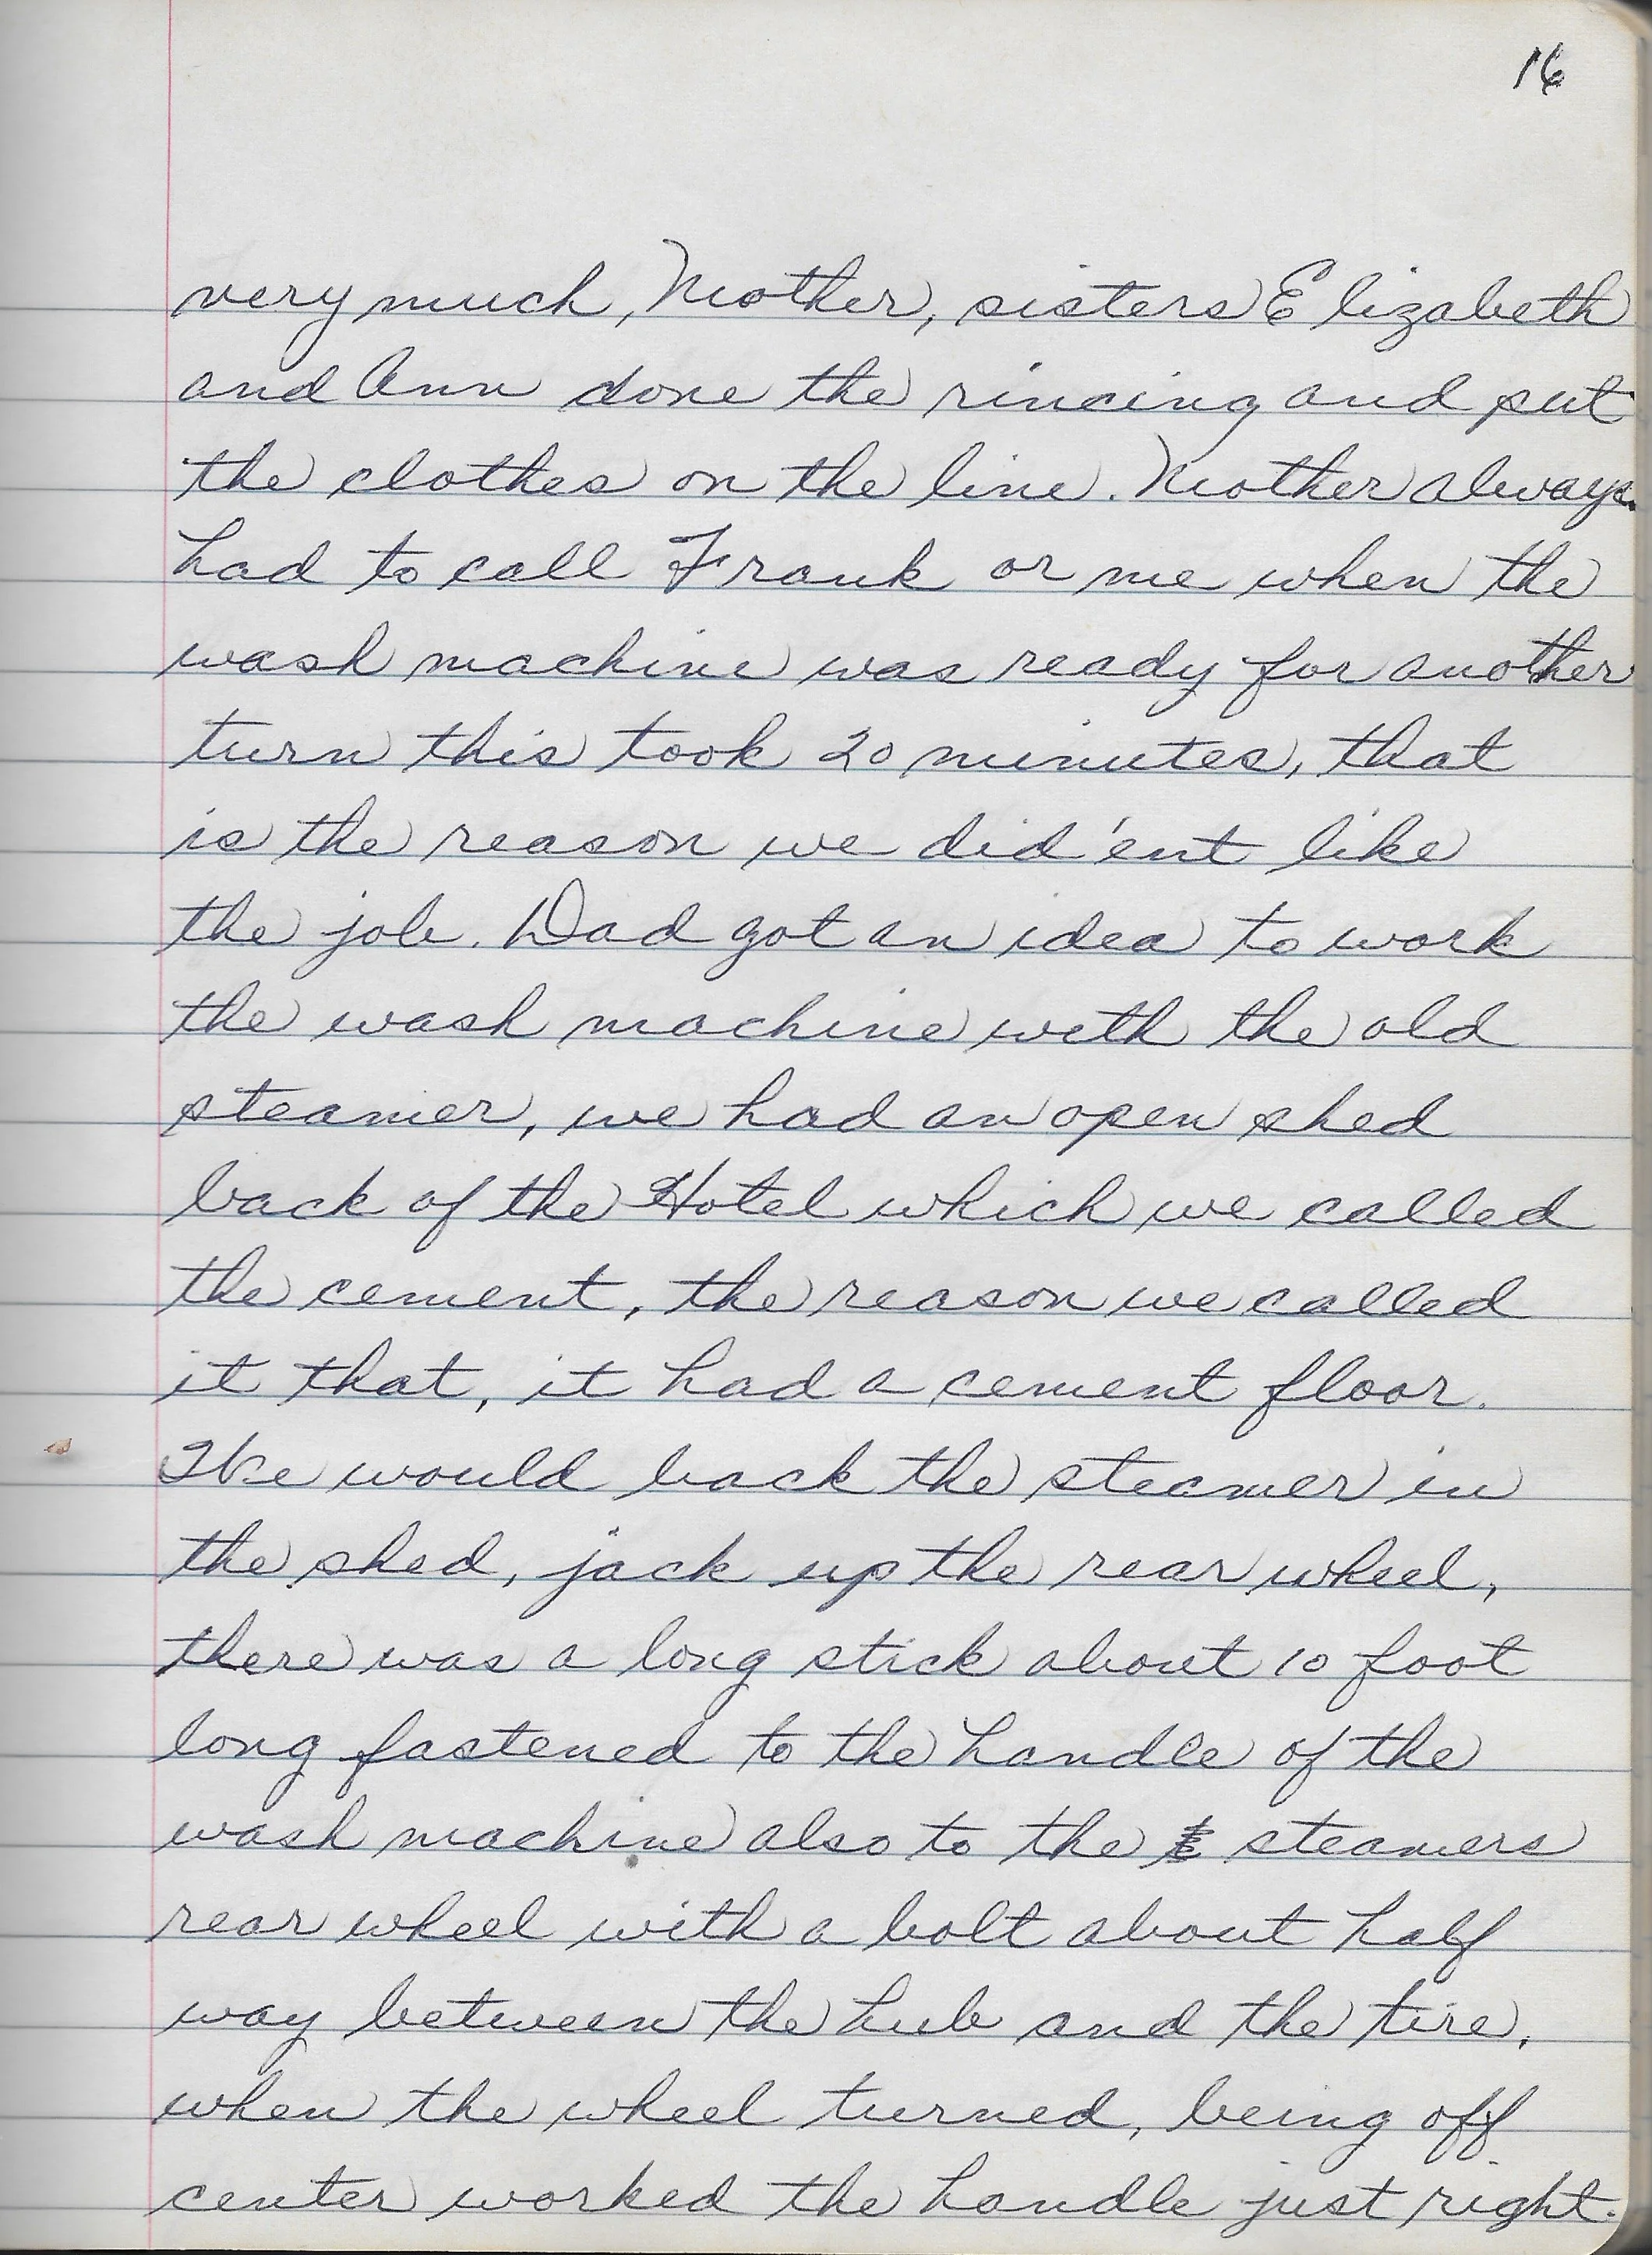 16
very much, Mother, sisters Elizabeth
and Ann done the rincing and put
the clothes on the line. Mother always
had to call Frank or me when the
wash machine was ready for another
turn this took 20 minutes, that
is the reason we did'ent like
the job. Dad got an idea to work
the wash machine with the old
steamer, we had an open shed
back of the Hotel which we called
the cement, the reason we called
it that, it had a cement floor.
We would back the steamer in
the shed, jack up the rear wheel,
there was a long stick about 10 foot
long fastened to the handle of the
wash machine also to the steamers
rear wheel with a bolt about half
way between the hub and the tire,
when the wheel turned, being off
center worked the handle just right.